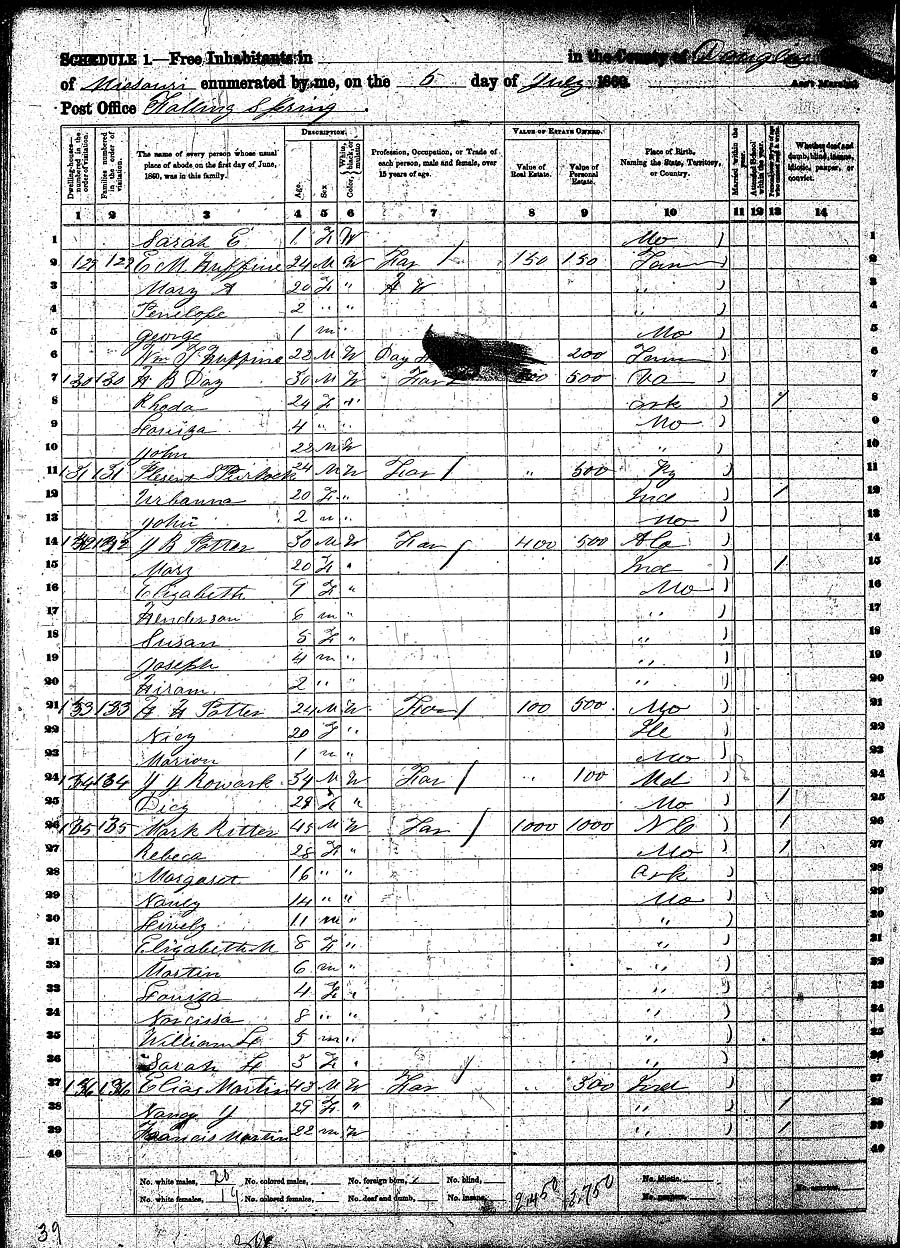 SCHEDULE 1.—Free Inhabitants in in the County of Douglas
of Missouri enumerated by me, on the 5 day of July 1860. Ass't Marshal
Post Office Falling Spring.
DESCRIPTION. VALUE OF ESTATE OWNED.
Dwelling-houses—numbered in the order of visitation. Families numbered in the order of visitation. The name of every person whose usual place of abode on the first day of June, 1860, was in this family. Age. Sex Color, White, black, or mulatto Profession, Occupation, or Trade of each person, male and female, over 15 years of age. Value of Real Estate. Value of Personal Estate. Place of Birth, Naming the State, Territory, or Country. Married within the year. Attended School within the year. Whether deaf and dumb, blind, insane, idiotic, pauper, or convict.
1 2 3 4 5 6 7 8 9 10 11 12 13 14
1 Sarah E 1 F W Mo 1
2 129 129 E M Huffine 24 M W Far 150 150 Tenn 2
3 Mary A 20 F " H W " 3
4 Penelope 2 " " " 4
5 George 1 m " Mo 5
6 Wm T Huffine 22 M W Day 200 Tenn 6
7 130 130 H B Day 30 M W Far 500 Va 7
8 Rhoda 24 F " Ark / 8
9 Louiza 4 " " Mo 9
10 John 22 M W " 10
11 131 131 Plesent 24 M W Far " 500 Ky 11
12 Urbanna 20 F " Ind / 12
13 John 2 m " Mo 13
14 132 132 J B Potter 30 M W Far 400 500 Ala 14
15 Mary 20 F " Ind / 15
16 Elizabeth 9 F " Mo 16
17 Henderson 6 m " " 17
18 Susan 5 F " " 18
19 Joseph 4 m " " 19
20 Hiram 2 " " " 20
21 133 133 H H Potter 24 M W Far 100 500 Mo 21
22 Nicy 20 F " Ille 22
23 Marion 1 m " Mo 23
24 134 134 J J Rowark 34 M W Far " 100 Md 24
25 Dicy 29 F " Mo / 25
26 135 135 Mark Ritter 45 M W Far 1000 1000 N C / 26
27 Rebeca 28 F " Mo / 27
28 Margaret 16 " " Ark 28
29 Nancy 14 " " Mo 29
30 Lively 11 m " " 30
31 Elizabeth M 8 F " " 31
32 Martin 6 m " " 32
33 Louiza 4 F " " 33
34 Narcissa 8 " " " 34
35 William L 5 m " " 35
36 Sarah L 3 F " " 36
37 136 136 Elias Martin 43 M W Far " 300 Ind 37
38 Nancy J 29 F " " / 38
39 Francis Martin 22 m W " / 39
40 40
No. white males, 20 No. colored males, No. foreign born, No. blind, 2450 No. idiotic, No. convicts,
No. white females, 19 No. colored females, No. deaf and dumb, No. insane, No. paupers,
39